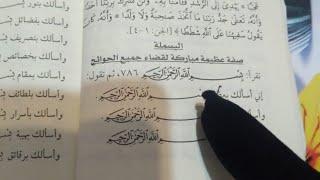 عجبا * يهدي إلى الرشد فآمنا به ولن نشرك بربنا أحدا *
وأنه تعالى جد ربنا ما اتخذ صاحبة ولا ولدا * وأنه كان
يقول سفيهنا على الله شططا﴾ (الجن: ١-٤).
البسملة
صفة عظيمة مباركة لقضاء جميع الحوائج
تقرأ: بسم الله الرحمن الرحيم ٧٨٦، ثم تقول:
إني أسألك بسم الله الرحمن الرحيم.
بسم الله الرحمن الرحيم
بسم الله الرحمن الرحيم
وأسألك بنور
وأسألك بتصريف
وأسألك بخصائص
وأسألك بمقام
وأسألك بلطائف
وأسألك بأسرار
وأسألك بهيبة
وأسألك برقائق